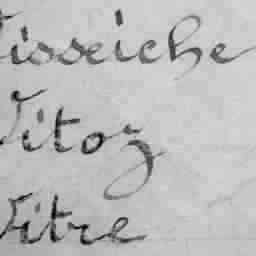 Visseiche
Vitoz
Vitre